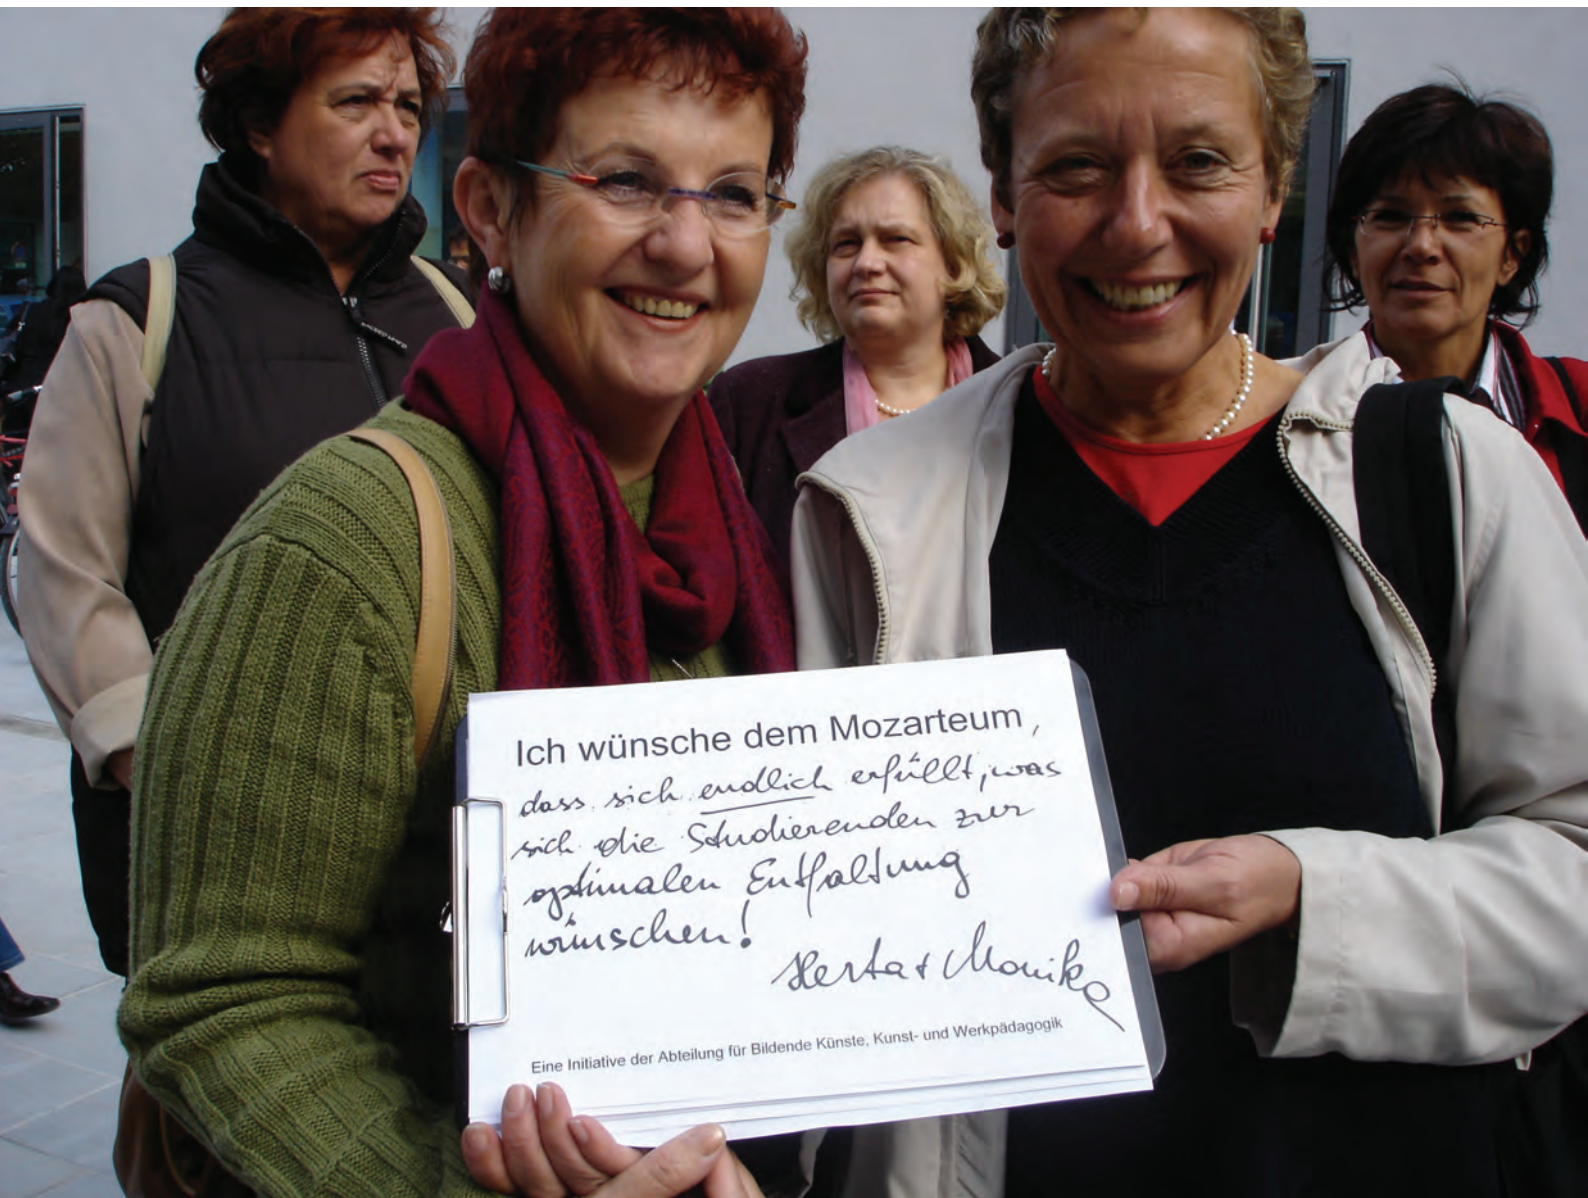 Ich wünsche dem Mozarteum,
dass sich endlich erfüllt, was
sich die Studierenden zur
optimalen Entfaltung
wünschen!
Herta + Monika
Eine Initiative der Abteilung für Bildende Künste, Kunst- und Werkpädagogik